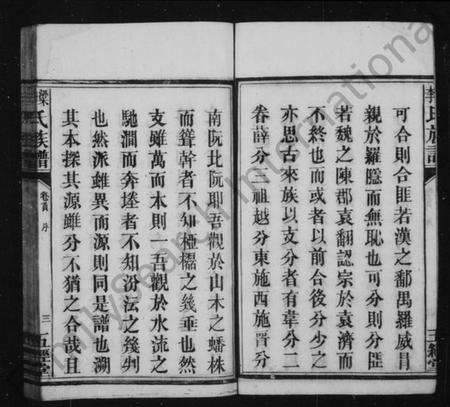 李氏族譜
可合則合匪若漢之鄱禺羅威目
親於羅隱而無恥也可分則分匪
若魏之陳郡袁翻認宗於袁濟而
不終也而或者以前合後分少之
亦思古來族以支分者有韋分二
眷薛分三祖越分東施西施晉分
五經堂
南阮北阮耶吾觀於山木之蟠株
而聳幹者不知極孺之幾垂也然
支雖萬而木則一吾觀於水流之
馳澗而奔壑者不知汾沄之幾判
也然派雖異而源則同是譜也溯
其本探其源雖分不猶之合哉且
梁氏族譜
卷首 序
三
五經堂
FamilySearch International